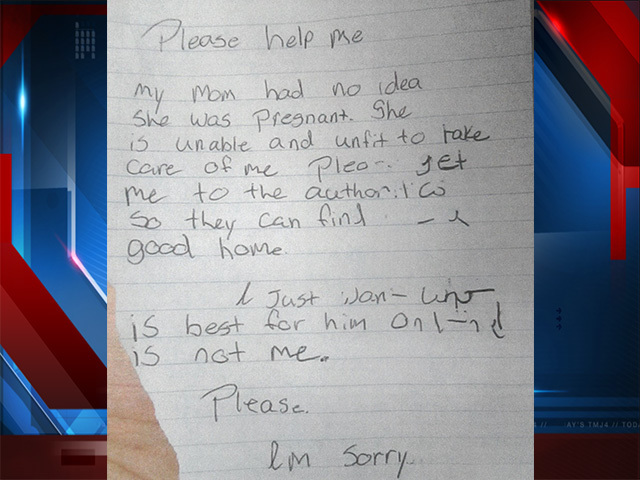 Please help me
my mom had no idea
she was pregnant. She
is unable and unfit to take
care of me get
me to the
so they can find
good home.
I Just
is best for him
is not me.
Please.
Im Sorry.
AY'S TMJ4 //